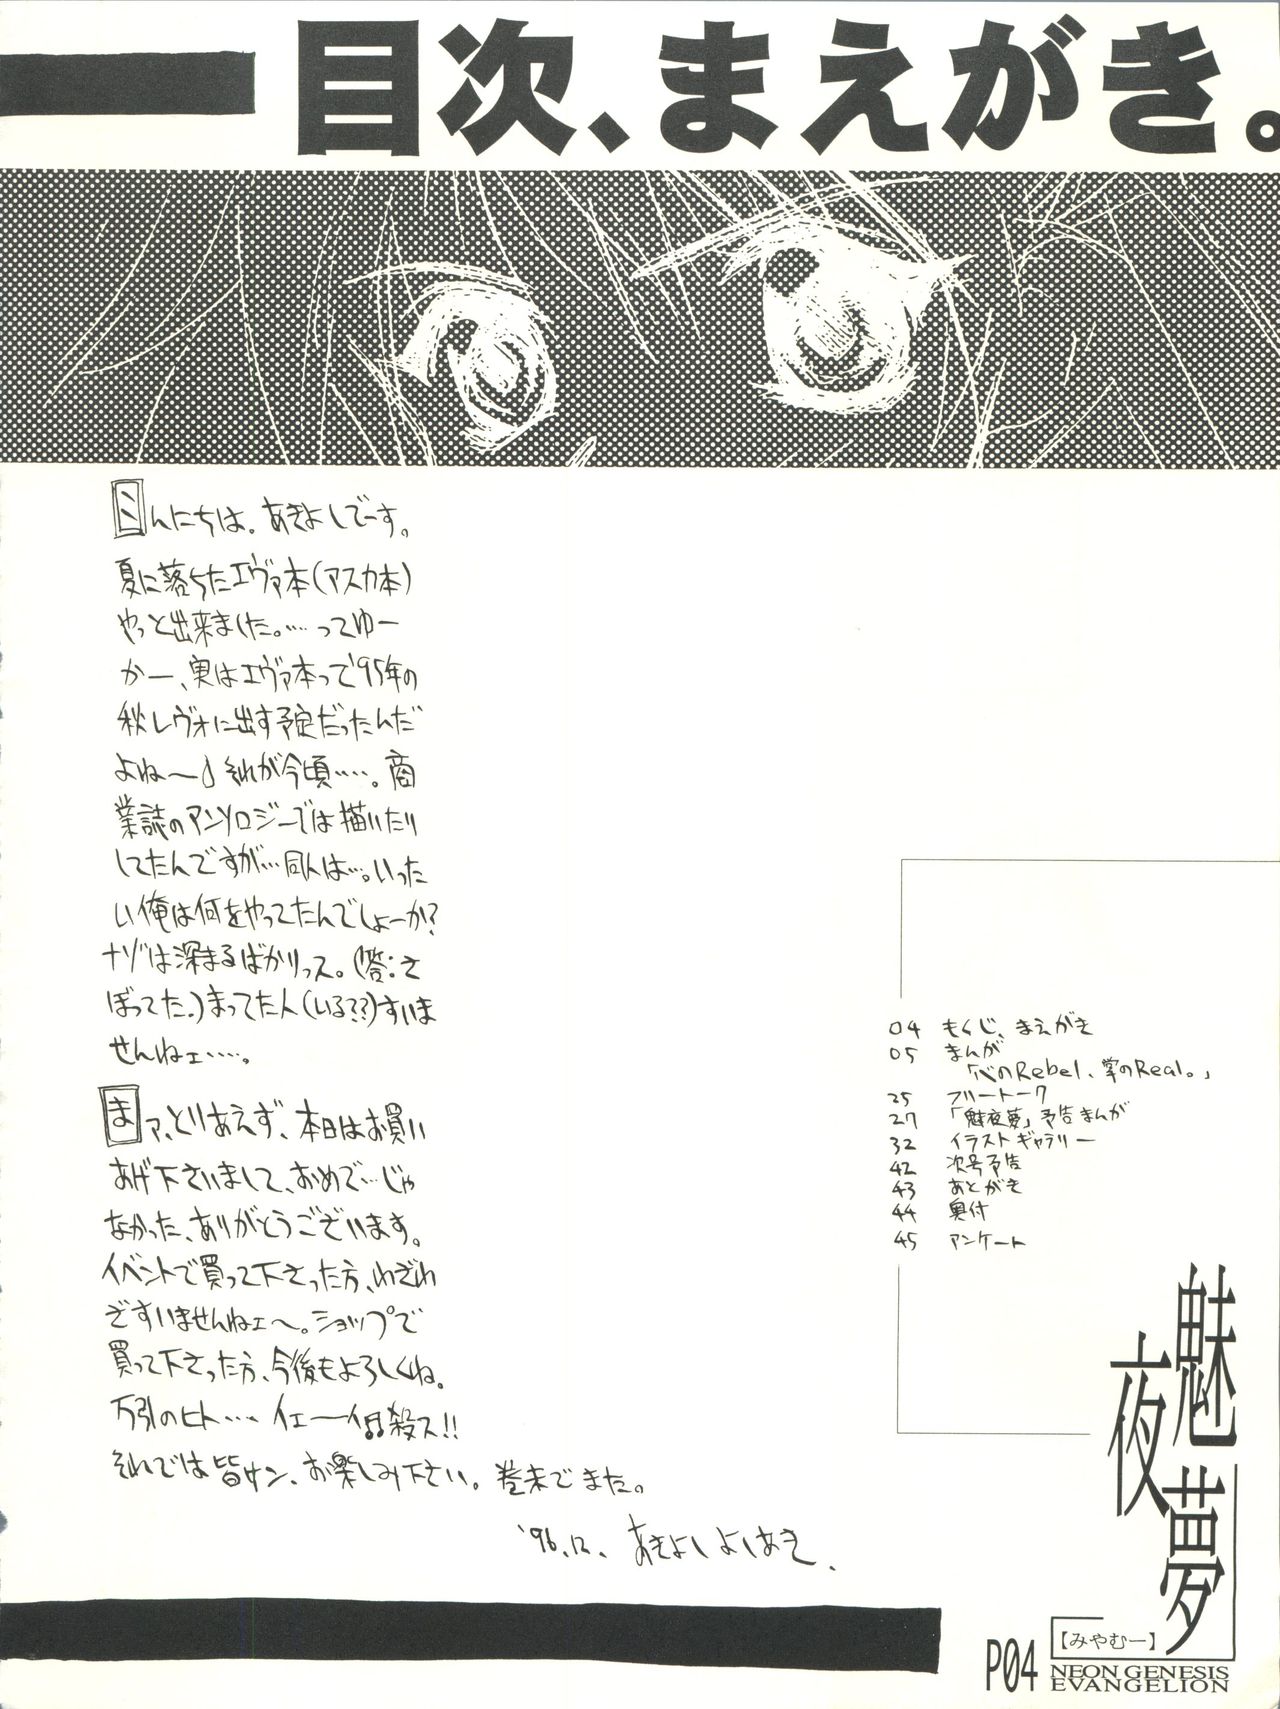 目次、まえがき。
こんにちは。あきよしでーす。
夏に落ちたエヴァ本(アスカ本)
やっと出来ました。…ってゆー
かー、実はエヴァ本って'95年の
秋レヴォに出す予定だったんだ
よね〜♪それが今頃……。商
業誌のアンソロジーでは描いたり
してたんですが…同人は…。いった
い俺は何をやってたんでしょーか?
ナゾは深まるばかりっス。(答:さ
ぼってた。)まってた人(いる??)すいま
せんねェ……。
まァ、とりあえず、本日はお買い
あげ下さいまして、おめで…じゃ
なかった、ありがとうございます。
イベントで買って下さった方、わざわ
ざすいませんねェ〜。ショップで
買って下さった方、今後もよろしくね。
万引のヒト…
殺ス!!
それでは皆サン、お楽しみ下さい。巻末でまた。
'96.12. あきよしよしあき.
04 もくじ、まえがき
05 まんが
「心のRebel、掌のReal。」
25 フリートーク
27 「魅夜夢」予告まんが
32 イラストギャラリー
42 次号予告
43 あとがき
44 奥付
45 アンケート
魅夜夢
【みやむー】
P04
NEON GENESIS
EVANGELION